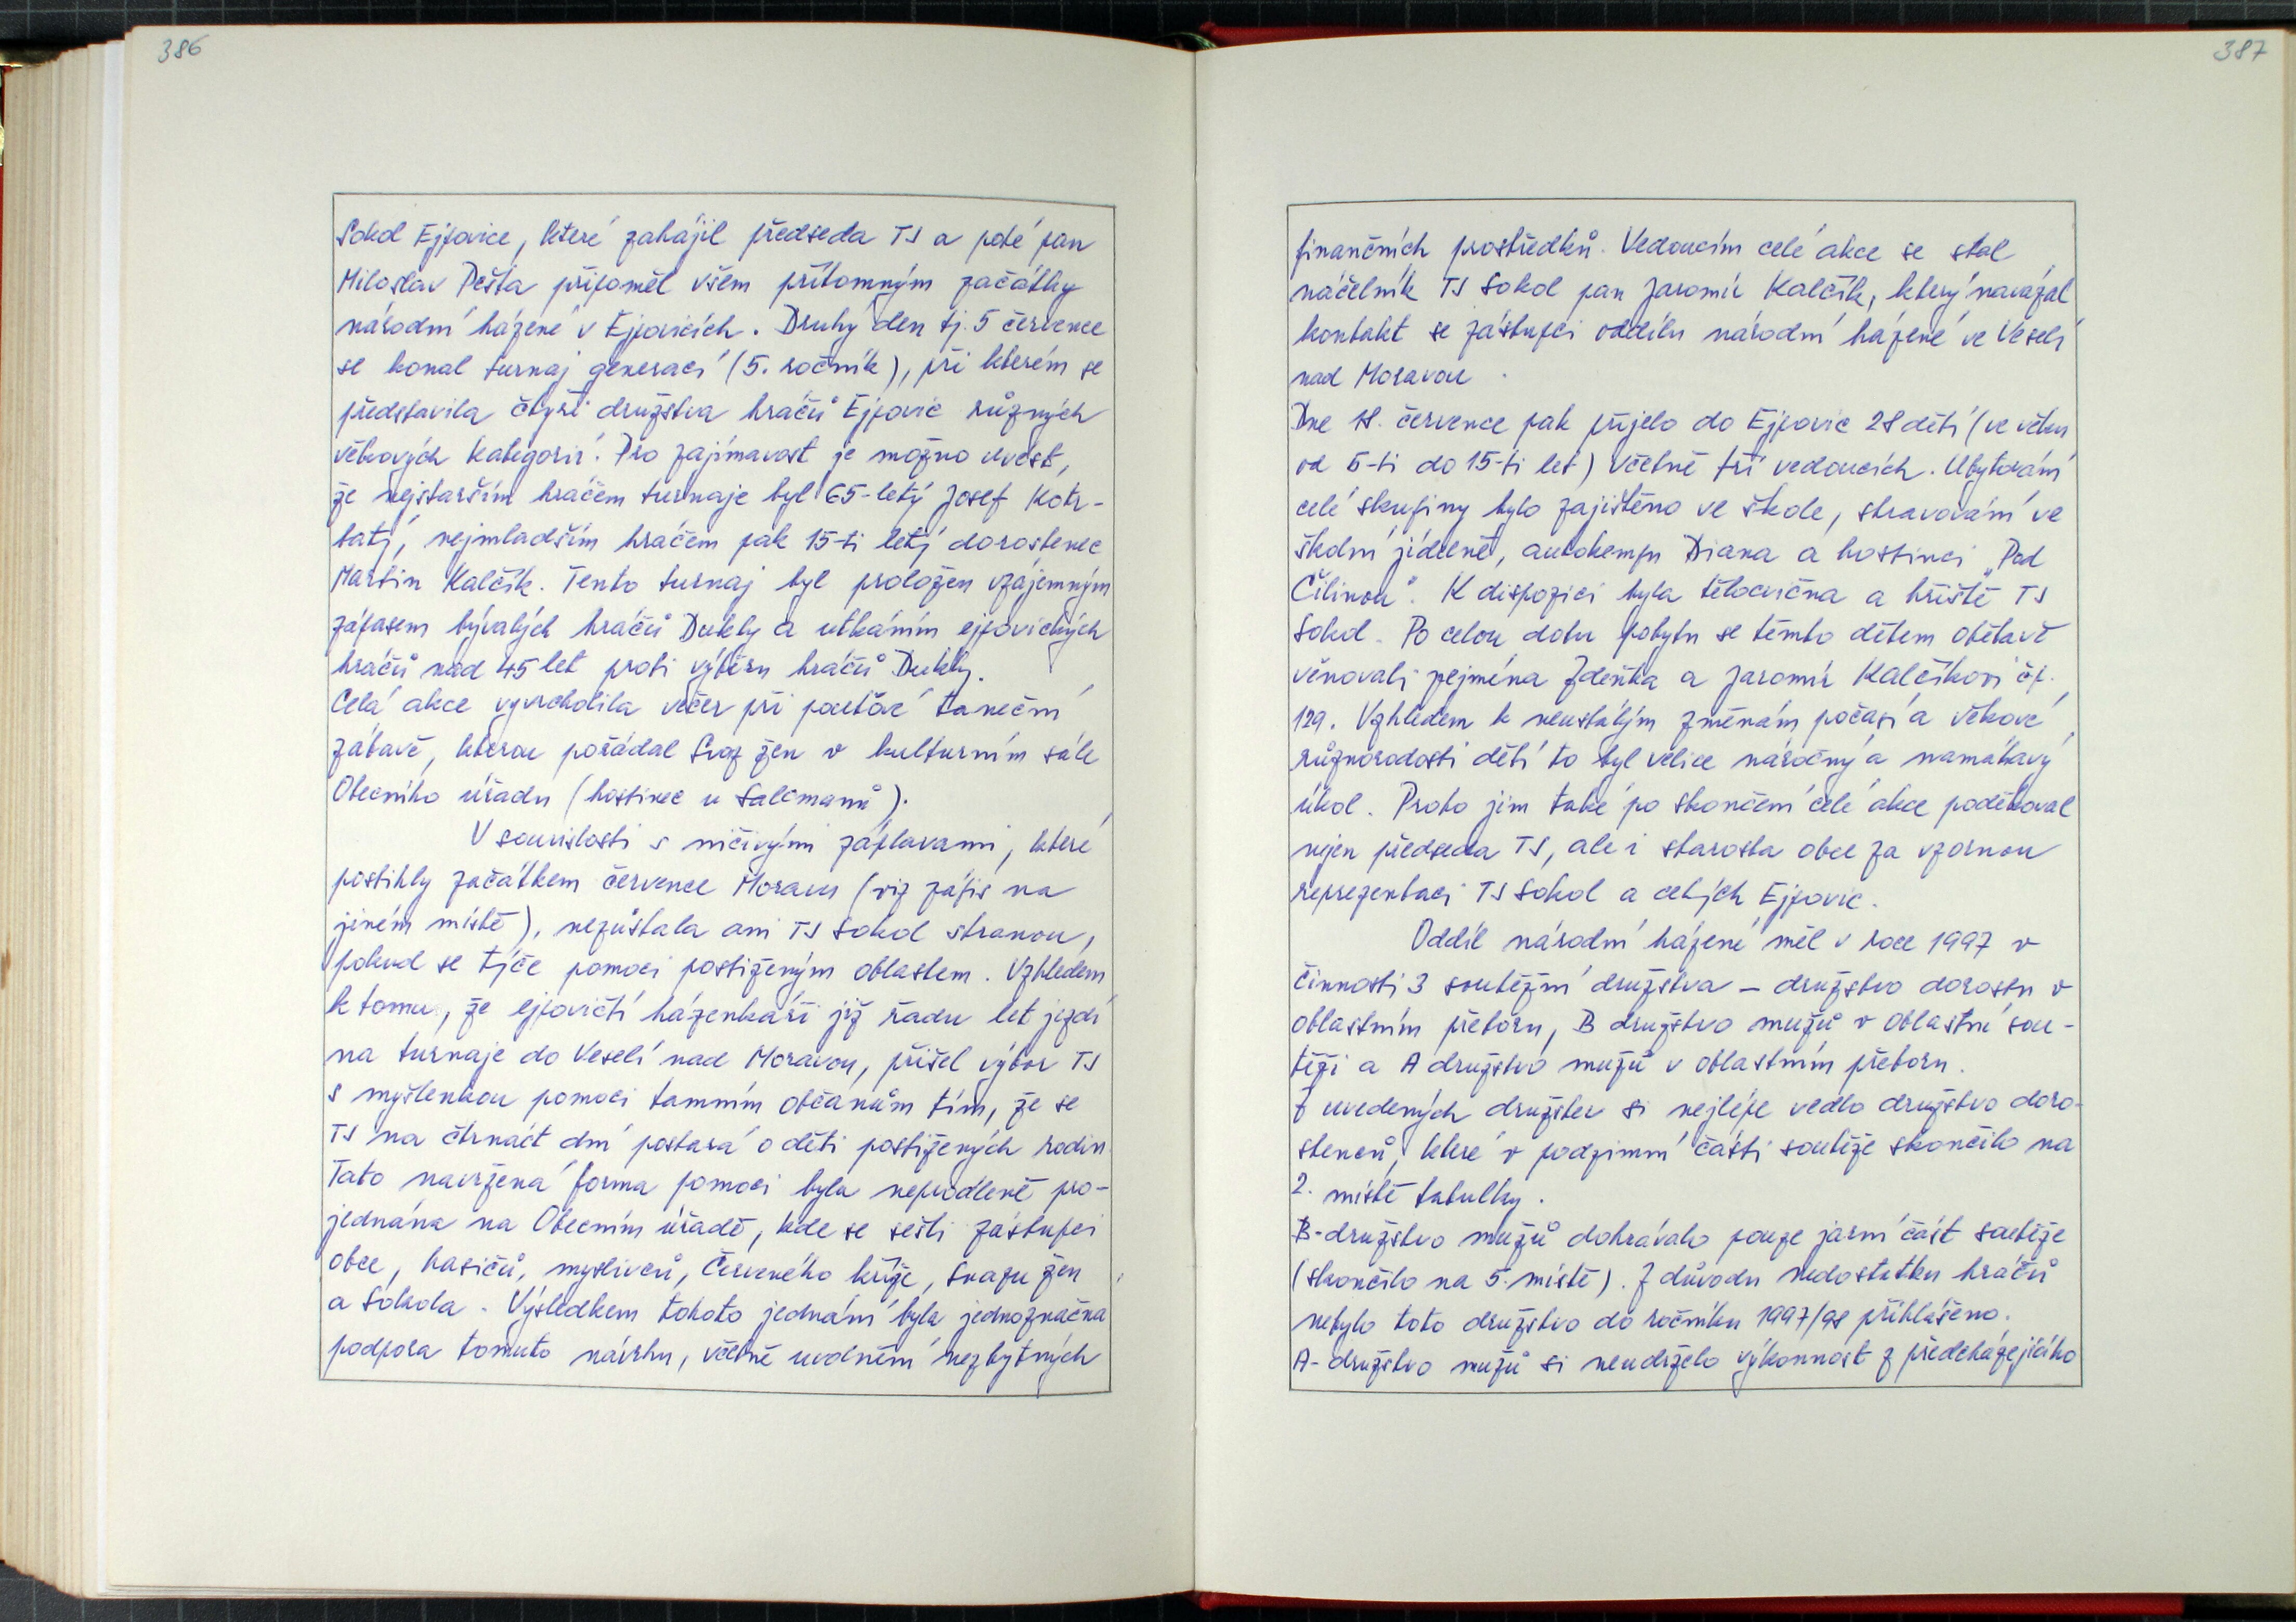 386
Sokol Ejpovice, které zahájil předseda TJ a poté pan
Miloslav Pešta připoměl všem přítomným začátky
národní házené v Ejpovicích. Druhý den tj. 5 července
se konal turnaj generací (5. ročník), při kterém se
představila čtyři družstva hráčů Ejpovic různých
věkových kategorií. Pro zajímavost je možno uvést,
že nejstarším hráčem turnaje byl 65-letý Josef Kotr-
batý, nejmladším hráčem pak 15-ti letý dorostenec
Martin Kalčík. Tento turnaj byl proložen vzájemným
zápasem bývalých hráčů Dukly a utkáním ejpovických
hráčů nad 45 let proti výběru hráčů Dukly.
Celá akce vyvrcholila večer při pouťové taneční
zábavě, kterou pořádal Svaz žen v kulturním sále
Obecního úřadu (hostinec u Salcmanů).
V souvislosti s ničivými záplavami, které
postihly začátkem července Moravu (viz zápis na
jiném místě), nezůstala ani TJ Sokol stranou,
pokud se týče pomoci postiženým oblastem. Vzhledem
k tomu, že ejpovičtí házenkáři již řadu let jezdí
na turnaje do Veselí nad Moravou, přišel výbor TJ
s myšlenkou pomoci tamním občanům tím, že se
TJ na čtrnáct dní postará o děti postižených rodin
Tato navržená forma pomoci byla neprodleně pro-
jednána na Obecním úřadě, kde se sešli zástupci
obce, hasičů, myslivců, Červeného kříže, Svazu žen
a Sokola. Výsledkem tohoto jednání byla jednoznačná
podpora tomuto návrhu, včetně uvolnění nezbytných
387
finančních prostředků. Vedoucím celé akce se stal
náčelník TJ Sokol pan Jaromír Kalčík, který navázal
kontakt se zástupci oddílu národní házené ve Veselí
nad Moravou.
Dne 18. července pak přijelo do Ejpovic 28 dětí (ve věku
od 6-ti do 15-ti let) včetně tří vedoucích. Ubytování
celé skupiny bylo zajištěno ve škole, stravování ve
školní jídelně, autokempu Diana a hostinci „Pod
Čilinou". K dispozici byla tělocvična a hřiště TJ
Sokol. Po celou dobu pobytu se těmto dětem obětavě
věnovali zejména Zdeňka a Jaromír Kalčíkovi čp.
129. Vzhledem k neustálým změnám počasí a věkové
různorodosti dětí to byl velice náročný a namáhavý
úkol. Proto jim také po skončení celé akce poděkoval
nejen předseda TJ, ale i starosta obce za vzornou
reprezentaci TJ Sokol a celých Ejpovic.
Oddíl národní házené měl v roce 1997 v
činnosti 3 soutěžní družstva – družstvo dorostu v
oblastním přeboru, B družstvo mužů v oblastní sou-
těži a A družstvo mužů v oblastním přeboru.
Z uvedených družstev si nejlépe vedlo družstvo doro-
stenců, které v podzimní části soutěže skončilo na
2. místě tabulky.
B-družstvo mužů dohrávalo pouze jarní část soutěže
(skončilo na 5. místě). Z důvodu nedostatku hráčů
nebylo toto družstvo do ročníku 1997/98 přihlášeno.
A-družstvo mužů si neudrželo výkonnost z předcházejícího